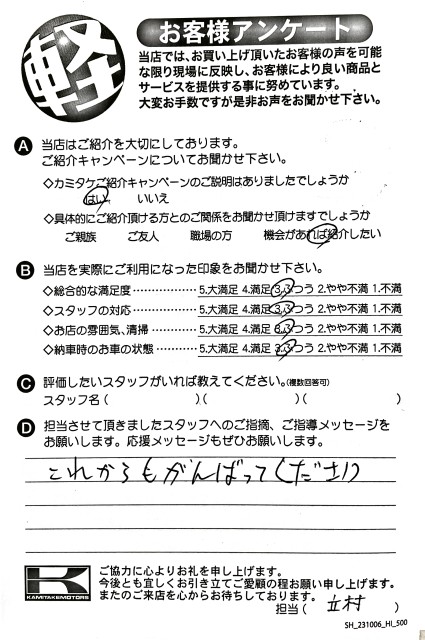 軽
お客様アンケート
当店では、お買い上げ頂いたお客様の声を可能
な限り現場に反映し、お客様により良い商品と
サービスを提供する事に努めています。
大変お手数ですが是非お声をお聞かせ下さい。
A 当店はご紹介を大切にしております。
ご紹介キャンペーンについてお聞かせ下さい。
◇カミタケご紹介キャンペーンのご説明はありましたでしょうか
はい いいえ
◇具体的にご紹介頂ける方とのご関係をお聞かせ頂けますでしょうか
ご親族 ご友人 職場の方 機会があれば紹介したい
B 当店を実際にご利用になった印象をお聞かせ下さい。
◇総合的な満足度 ……………… 5.大満足 4.満足 3.ふつう 2.やや不満 1.不満
◇スタッフの対応 ……………… 5.大満足 4.満足 3.ふつう 2.やや不満 1.不満
◇お店の雰囲気、清掃 ………… 5.大満足 4.満足 3.ふつう 2.やや不満 1.不満
◇納車時のお車の状態 ………… 5.大満足 4.満足 3.ふつう 2.やや不満 1.不満
C 評価したいスタッフがいれば教えてください。(複数回答可)
スタッフ名 ( )( )( )
D 担当させて頂きましたスタッフへのご指摘、ご指導メッセージを
お願いします。応援メッセージもぜひお願いします。
これからもがんばってください
K
KAMITAKEMOTORS
ご協力に心よりお礼を申し上げます。
今後とも宜しくお引き立てご愛顧の程お願い申し上げます。
またのご来店を心からお待ちしております。
担当 ( 立村 )
SH_231006_HI_500